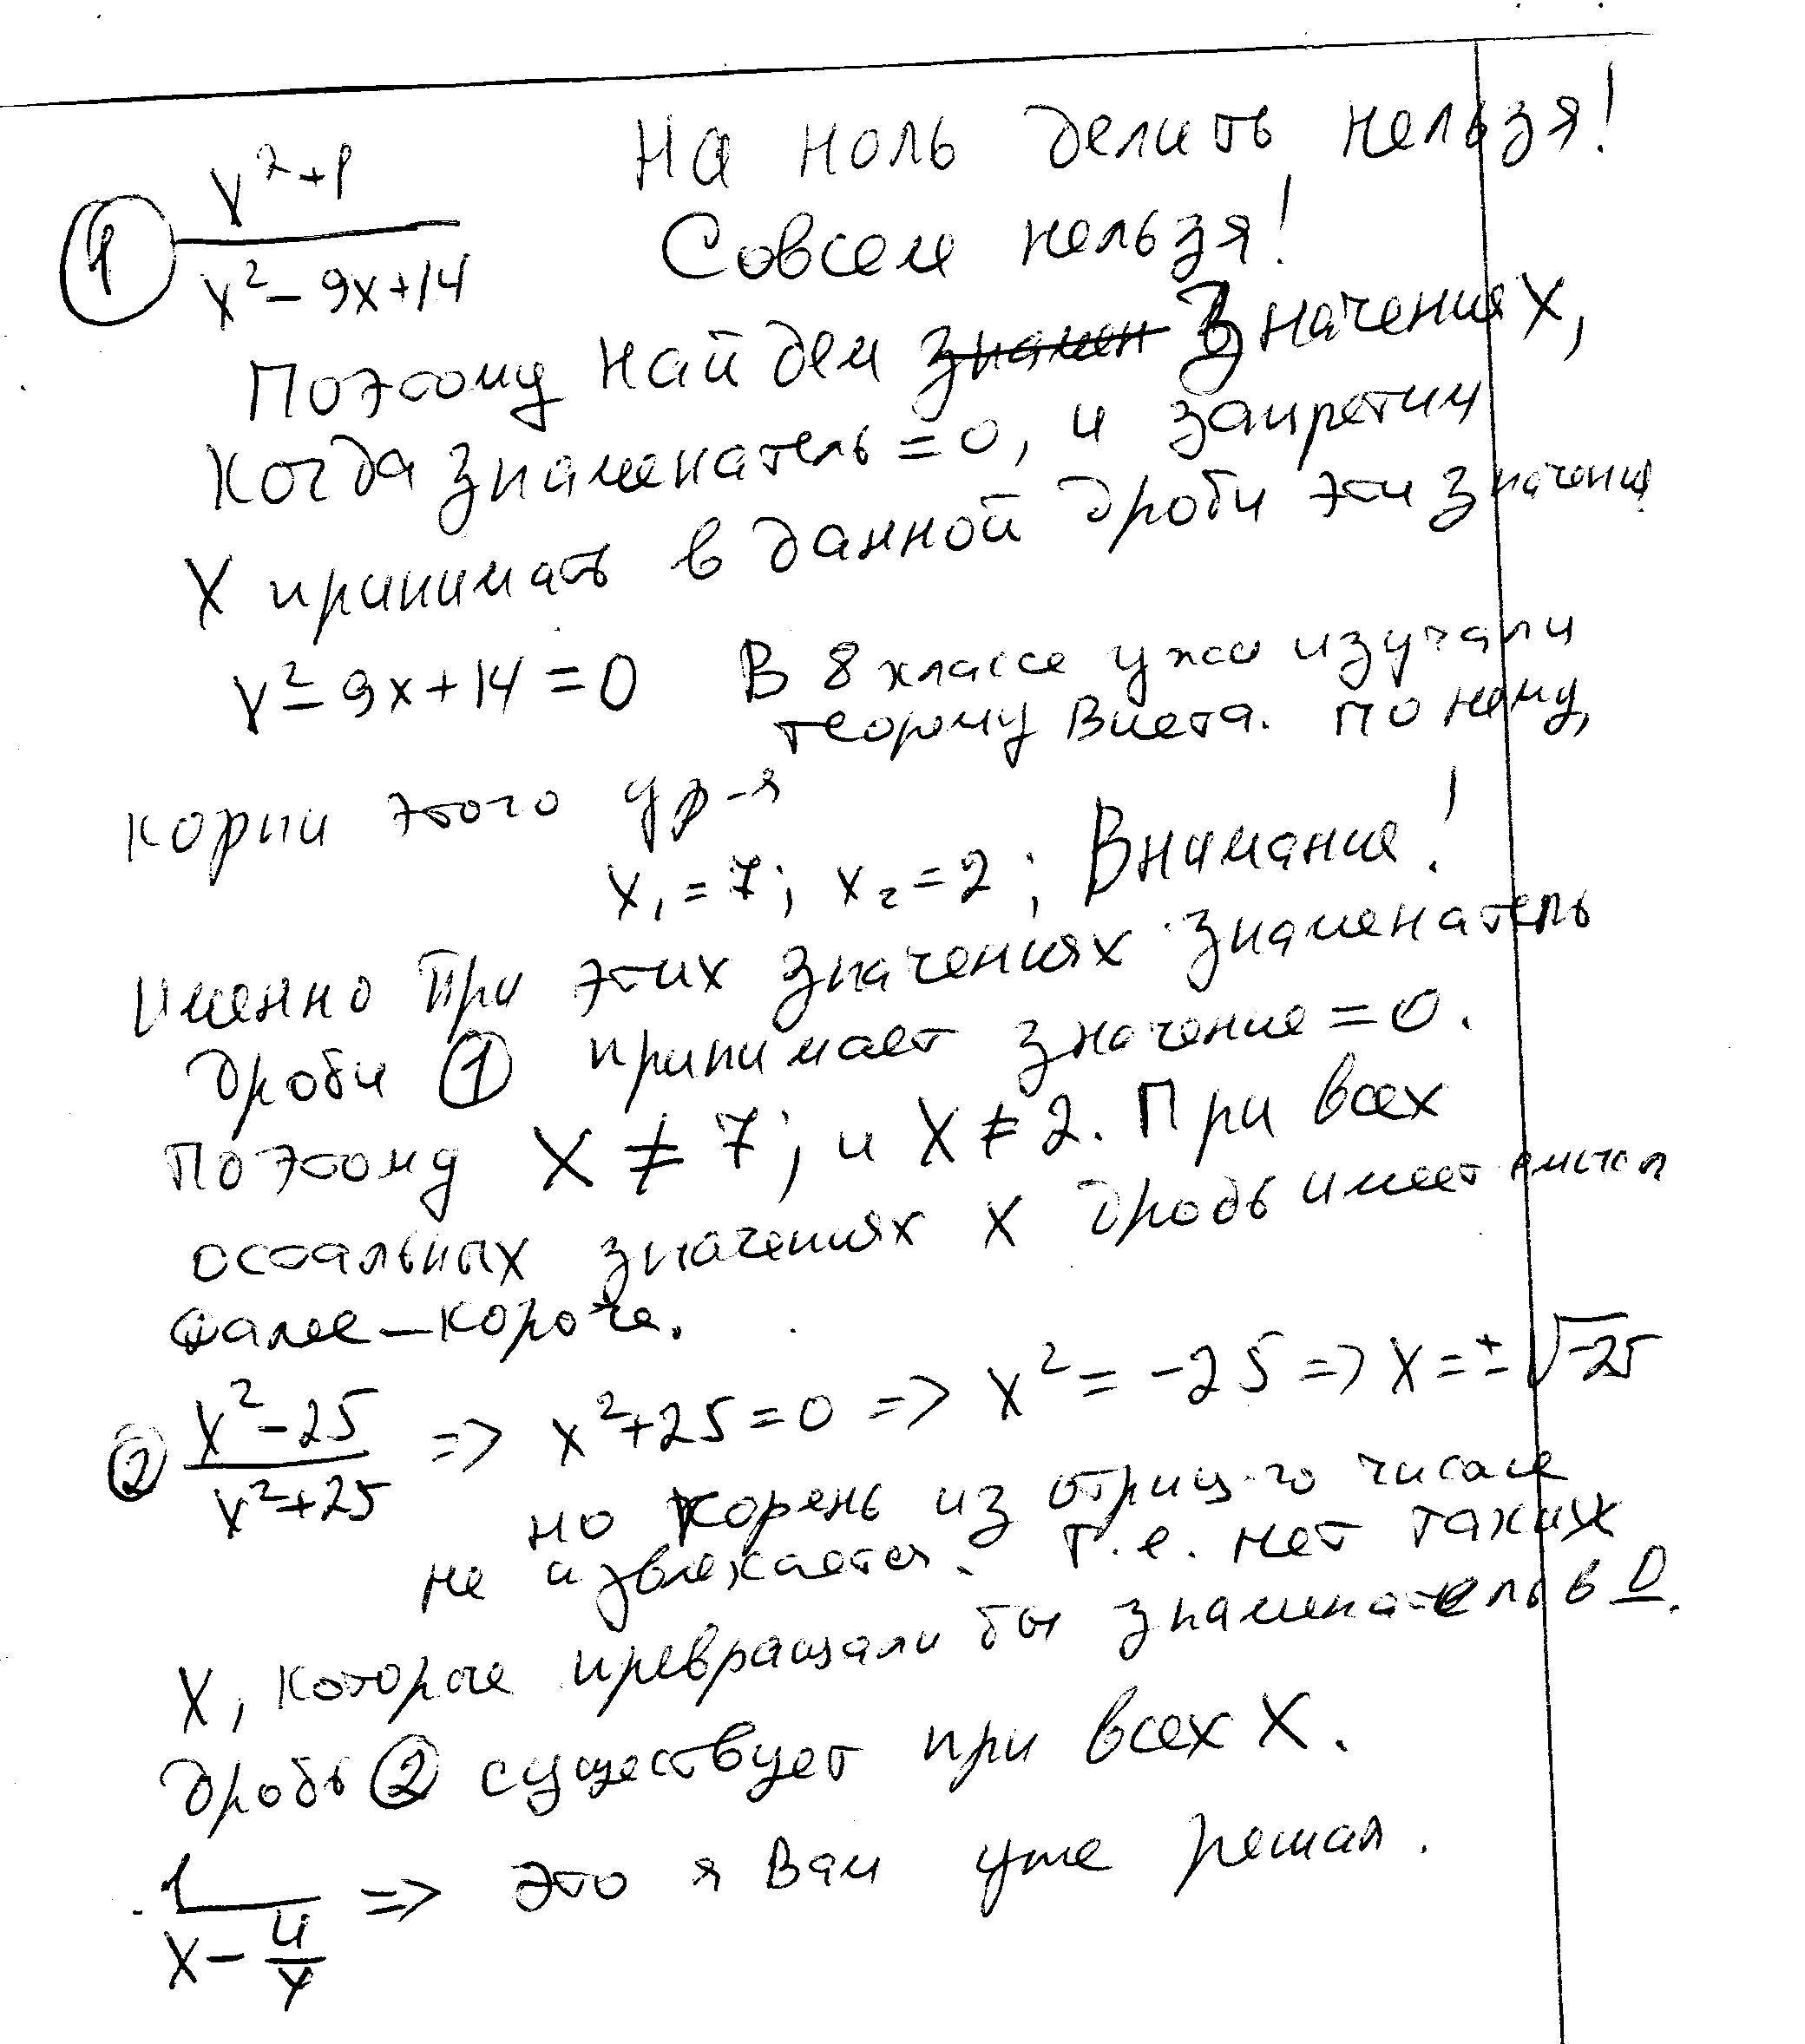 На ноль делить нельзя!
① (x²+1)/(x²-9x+14) Совсем нельзя!
Поэтому найдем ~~знамен~~ значения x,
когда знаменатель=0, и запретим
x принимать в данной дроби эти значения
x²-9x+14=0 В 8 классе уже изучали
теорему Виета. По нему,
корни этого ур-я
x₁=7; x₂=2; Внимание!
Именно при этих значениях знаменатель
дроби ① принимает значение=0.
Поэтому x≠7; и x≠2. При всех
остальных значениях x дробь имеет смысл
Далее-короче.
② (x²-25)/(x²+25) => x²+25=0 => x²=-25 => x=±√-25
но корень из отриц-го числа
не извлекается. Т.е. нет таких
x, которые превращали бы знаменатель в 0.
Дробь ② существует при всех x.
1/(x-4/x) => это я Вам уже решал.